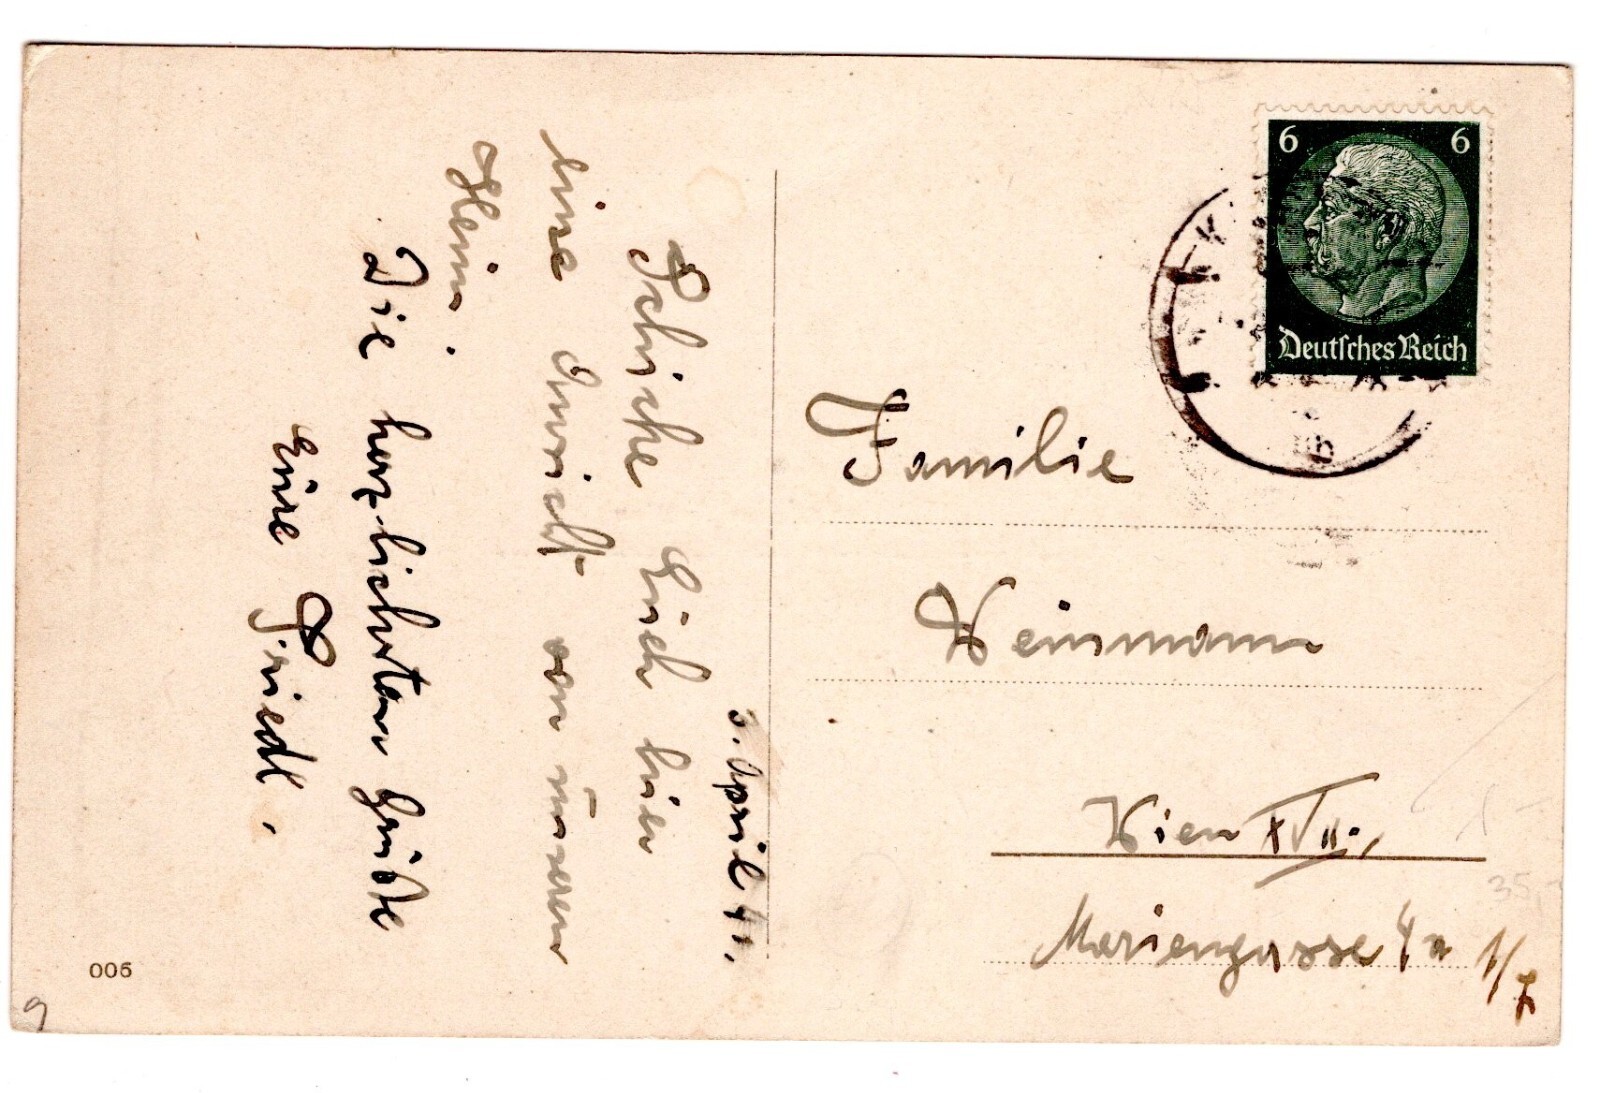 3. April 41.
Schicke Euch hier
eine Ansicht von unserem
Heim.
Die herzlichsten Grüße
Eure Friedl.
6 6
Deutsches Reich
Familie
Weinmann
Wien XVII.,
Mariengasse 4a 1/7
35,-
006
9